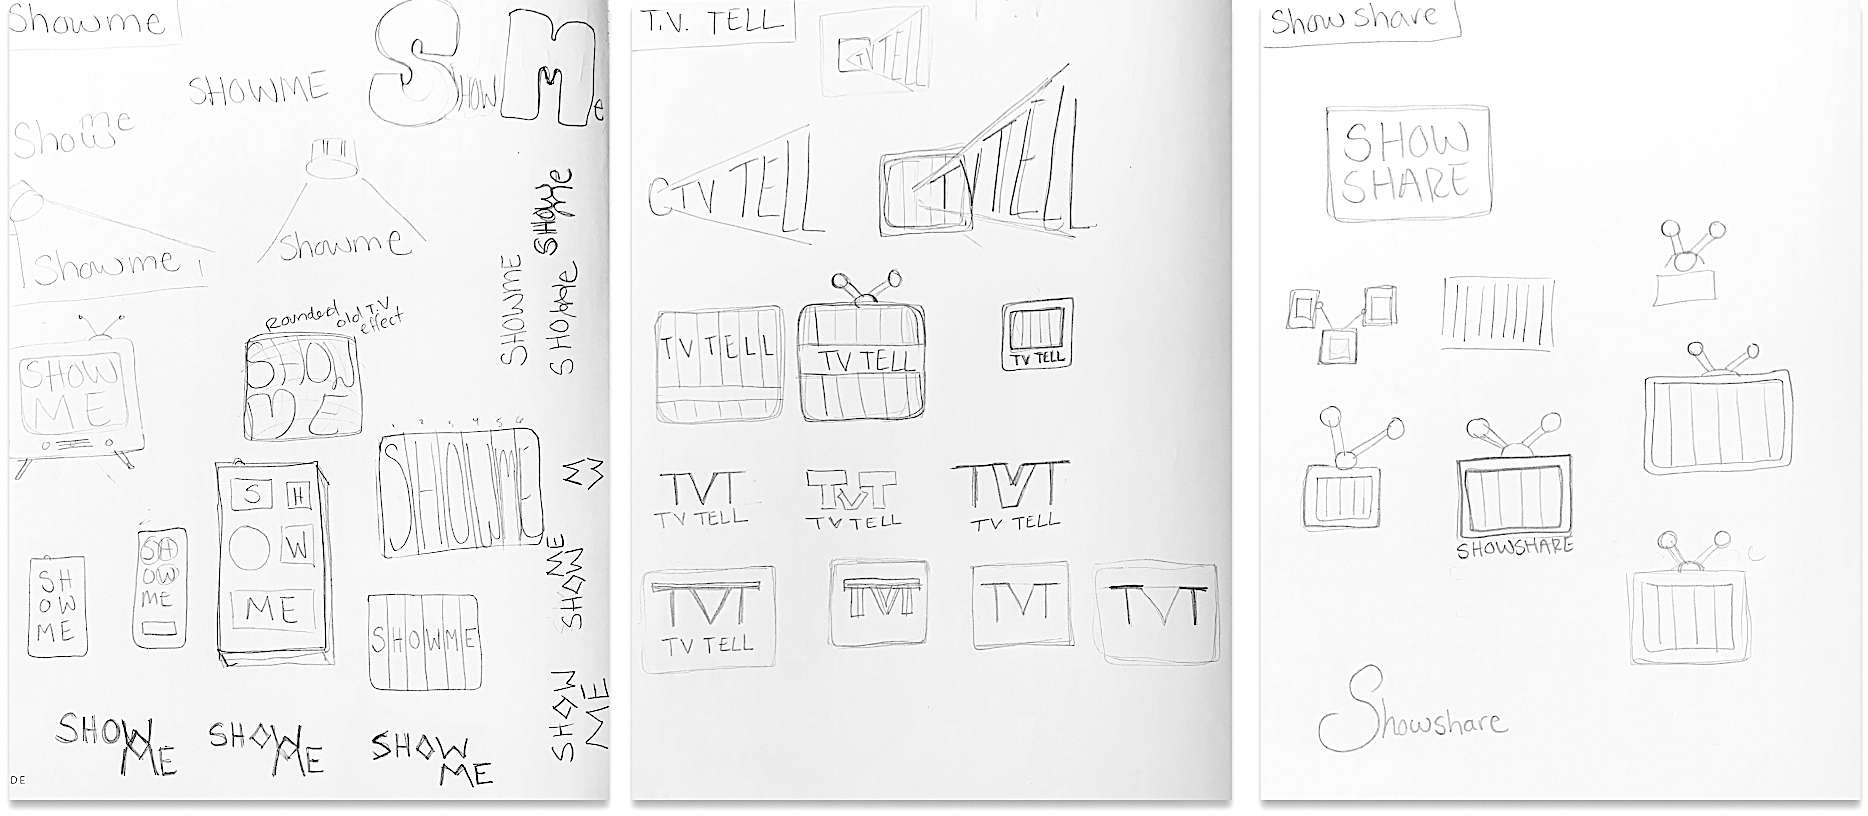 Showme
SHOWME
Show
Me
Show
me
Showme
Showme
Rounded old T.V
effect
SHOW
ME
SHOW
ME
1 2 3 4 5 6
SHOWME
S H
W
ME
SH
OW
ME
SH
OW
ME
SHOWME
SHOW
ME
SHOW
ME
SHOW
ME
SHOWME
SHOWME
M
W
SHOW
ME
SHOW
ME
DE
T.V. TELL
TV TELL
TV TELL
TV TELL
TV TELL
TV TELL
TV TELL
TVT
TV TELL
TVT
TV TELL
TVT
TV TELL
TVT
TV TELL
TVT
TVT
TVT
Show share
SHOW
SHARE
SHOWSHARE
Showshare